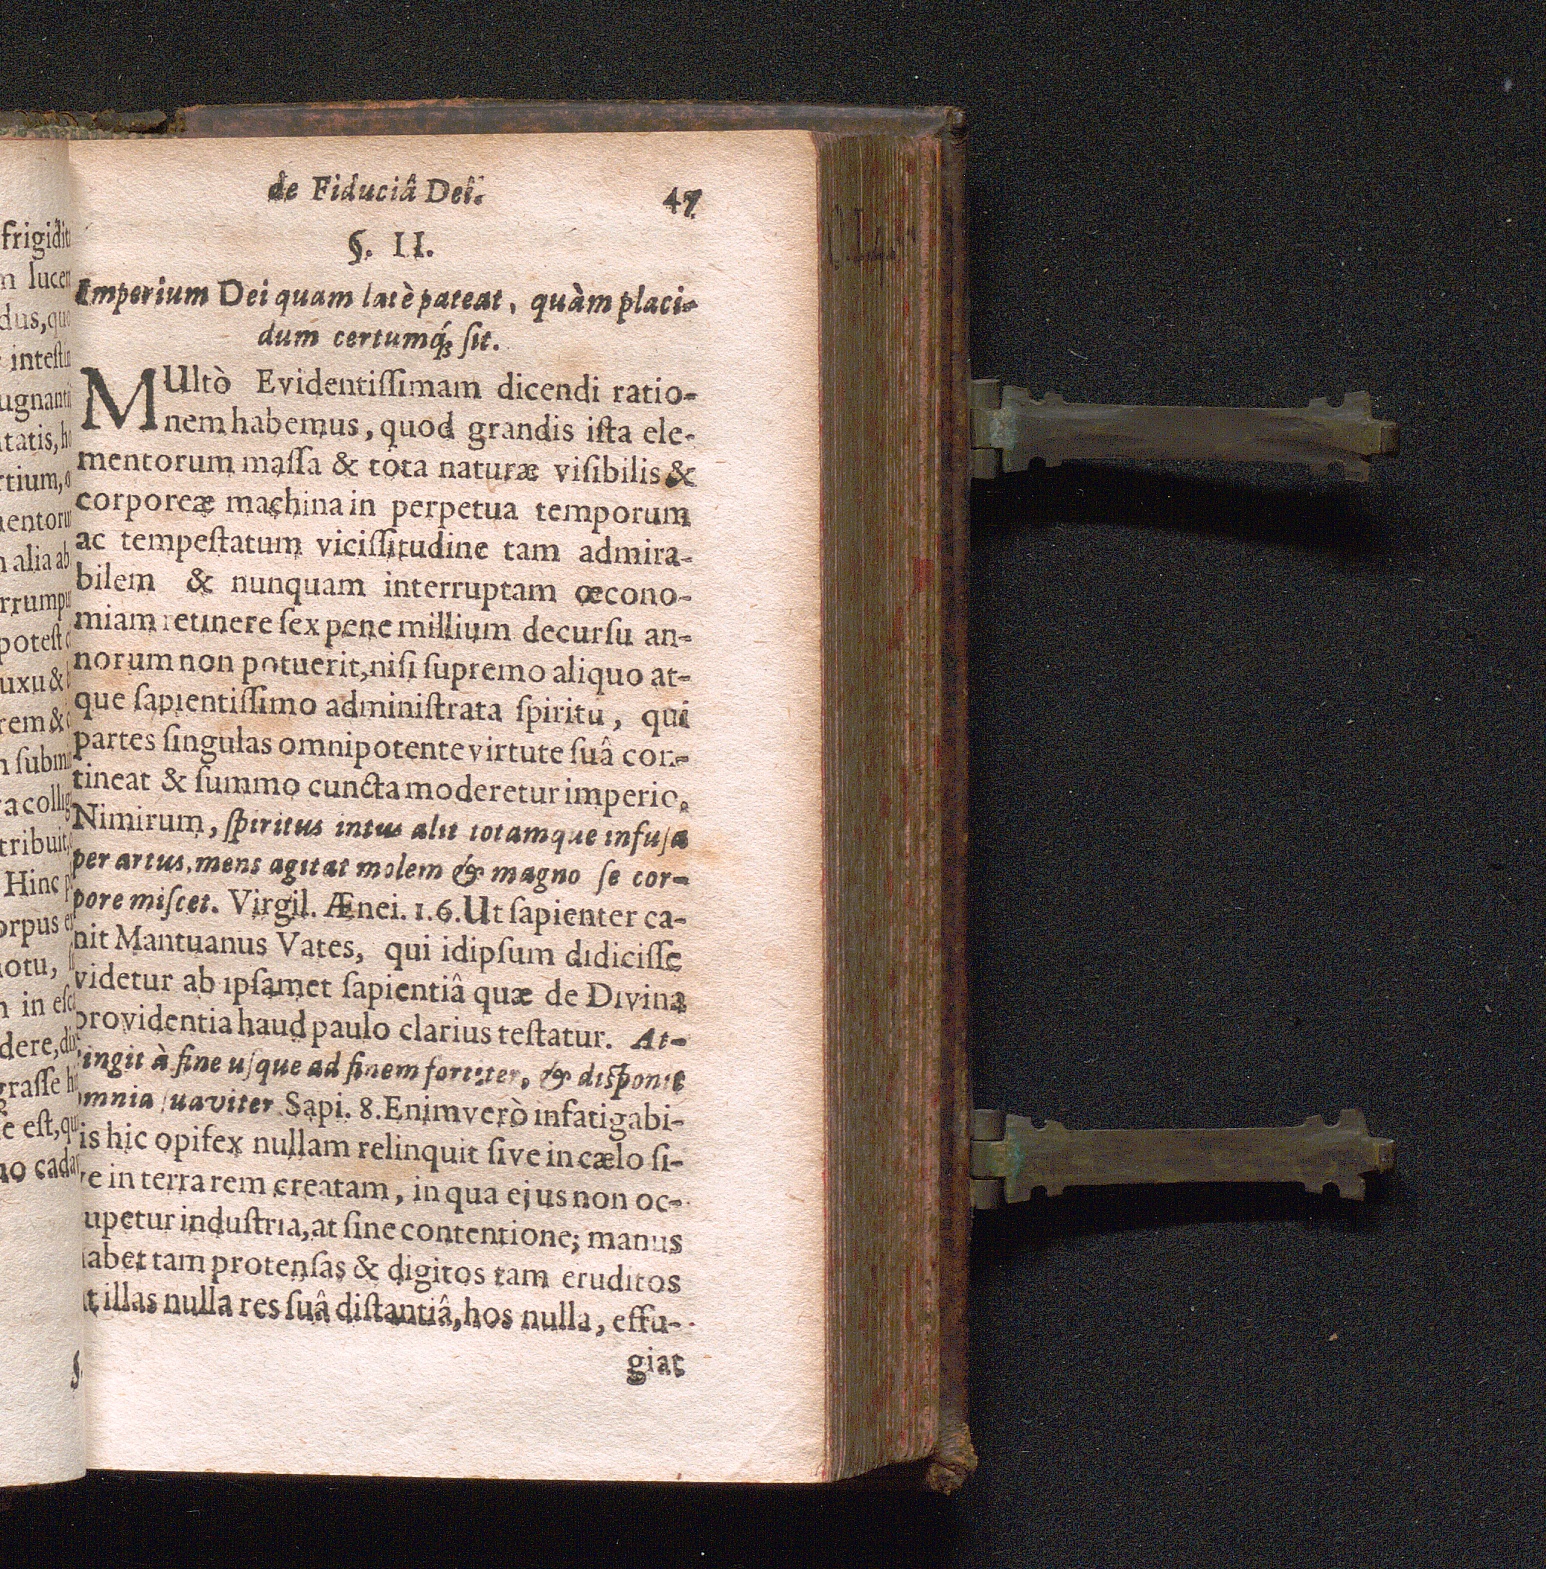 de Fiduciâ Dei.
47
§. II.
Imperium Dei quam latè pateat, quàm placi-
dum certumq́; ſit.
MUltò Evidentiſſimam dicendi ratio-
nem habemus, quod grandis iſta ele-
mentorum maſſa & tota naturæ viſibilis &
corporeæ machina in perpetua temporum
ac tempeſtatum viciſſitudine tam admira-
bilem & nunquam interruptam œcono-
miam retinere ſex pene millium decurſu an-
norum non potuerit, niſi ſupremo aliquo at-
que ſapientiſſimo adminiſtrata ſpiritu, qui
partes ſingulas omnipotente virtute ſuâ con-
tineat & ſummo cuncta moderetur imperio.
Nimirum, ſpiritus intus alit totamque infuſa
per artus, mens agitat molem & magno ſe cor-
pore miſcet. Virgil. Ænei. 1.6. Ut ſapienter ca-
nit Mantuanus Vates, qui idipſum didiciſſe
videtur ab ipſamet ſapientiâ quæ de Divina
providentia haud paulo clarius teſtatur. At-
tingit à fine uſque ad finem fortiter, & diſponit
omnia ſuaviter Sapi. 8. Enimverò infatigabi-
is hic opifex nullam relinquit ſive in cælo ſi-
ve in terra rem creatam, in qua ejus non oc-
upetur induſtria, at ſine contentione; manus
habet tam protenſas & digitos tam eruditos
ut illas nulla res ſuâ diſtantiâ, hos nulla, effu-
giat
frigidit
m lucem
dus, quo
inteſtin
ugnanti
tatis, ho
rtium, o
mentorum
alia ab
rrumpu
poteſt
uxu &
rem &
ſubmi
ra collig
tribuit,
Hinc
orpus
motu,
in eſca
dere,
graſſe
e eſt, qu
no cada
§.